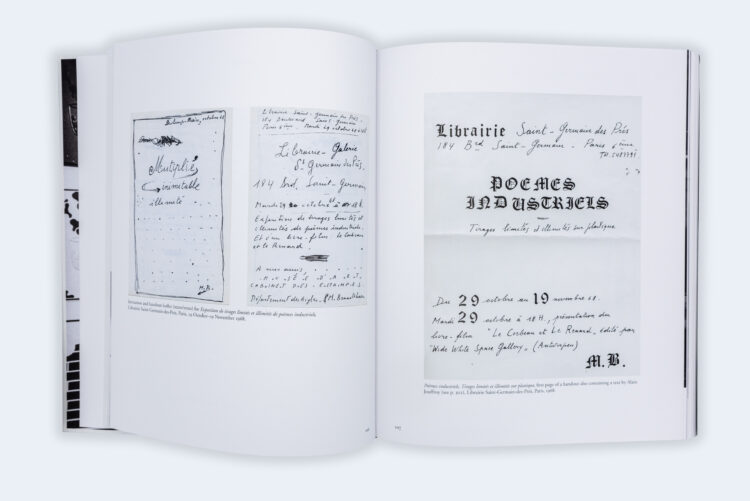 octobre 68
Multiplié
inimitable
illimité
M.B.
Librairie Saint-Germain des Prés
184 Boulevard Saint-Germain
Paris 6 Mardi 29 octobre
Librairie-Galerie
St Germain des Prés.
184 Bvd. Saint-Germain
Mardi 29 octobre à 18h.
Exposition de tirages limités et
illimités de poèmes industriels.
Et d'un livre-film le corbeau
et le Renard.
A nos amis
M.U.S.É.E. D'A.R.T.
CABINET DES ESTAMPES
Département des Aigles. M. Broodthaers
Invitation and handout leaflet for the Exposition de tirages limités et illimités de poèmes industriels,
Librairie Saint-Germain-des-Prés, Paris, 29 October–19 November 1968.
Librairie Saint-Germain des Prés
184 Bvd Saint-Germain - Paris 6
POEMES
INDUSTRIELS
Tirages limités et illimités sur plastique.
Du 29 octobre au 19 novembre 68.
Mardi 29 octobre à 18H., présentation du
livre-film "Le Corbeau et Le Renard" édité par
"Wide White Space Gallery" (Antwerpen)
M.B.
Poèmes industriels. Tirages limités et illimités sur plastique, first page of a handout also containing a text by Alain
Jouffroy (see p. 201), Librairie Saint-Germain-des-Prés, Paris, 1968.